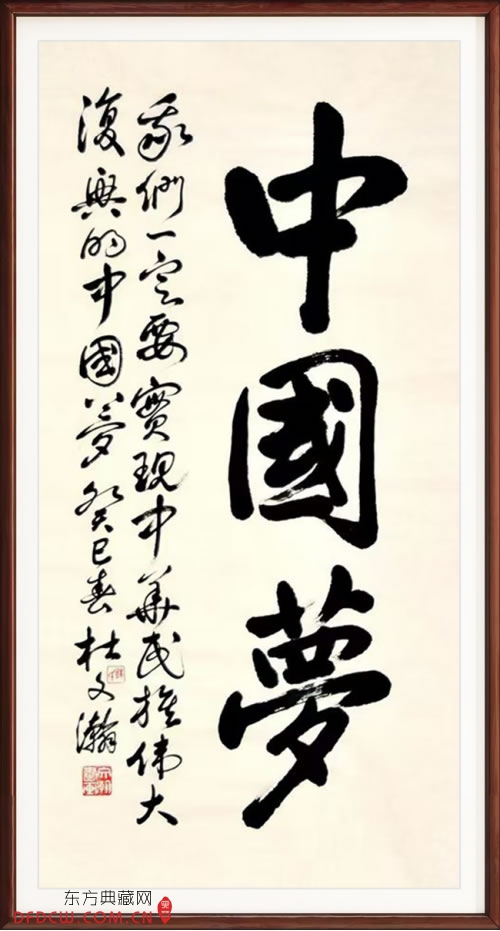 中國夢
我們一定要實現中華民族偉大
復興的中國夢癸巳春杜文瀚
东方典藏网
DFDCW.COM.CN